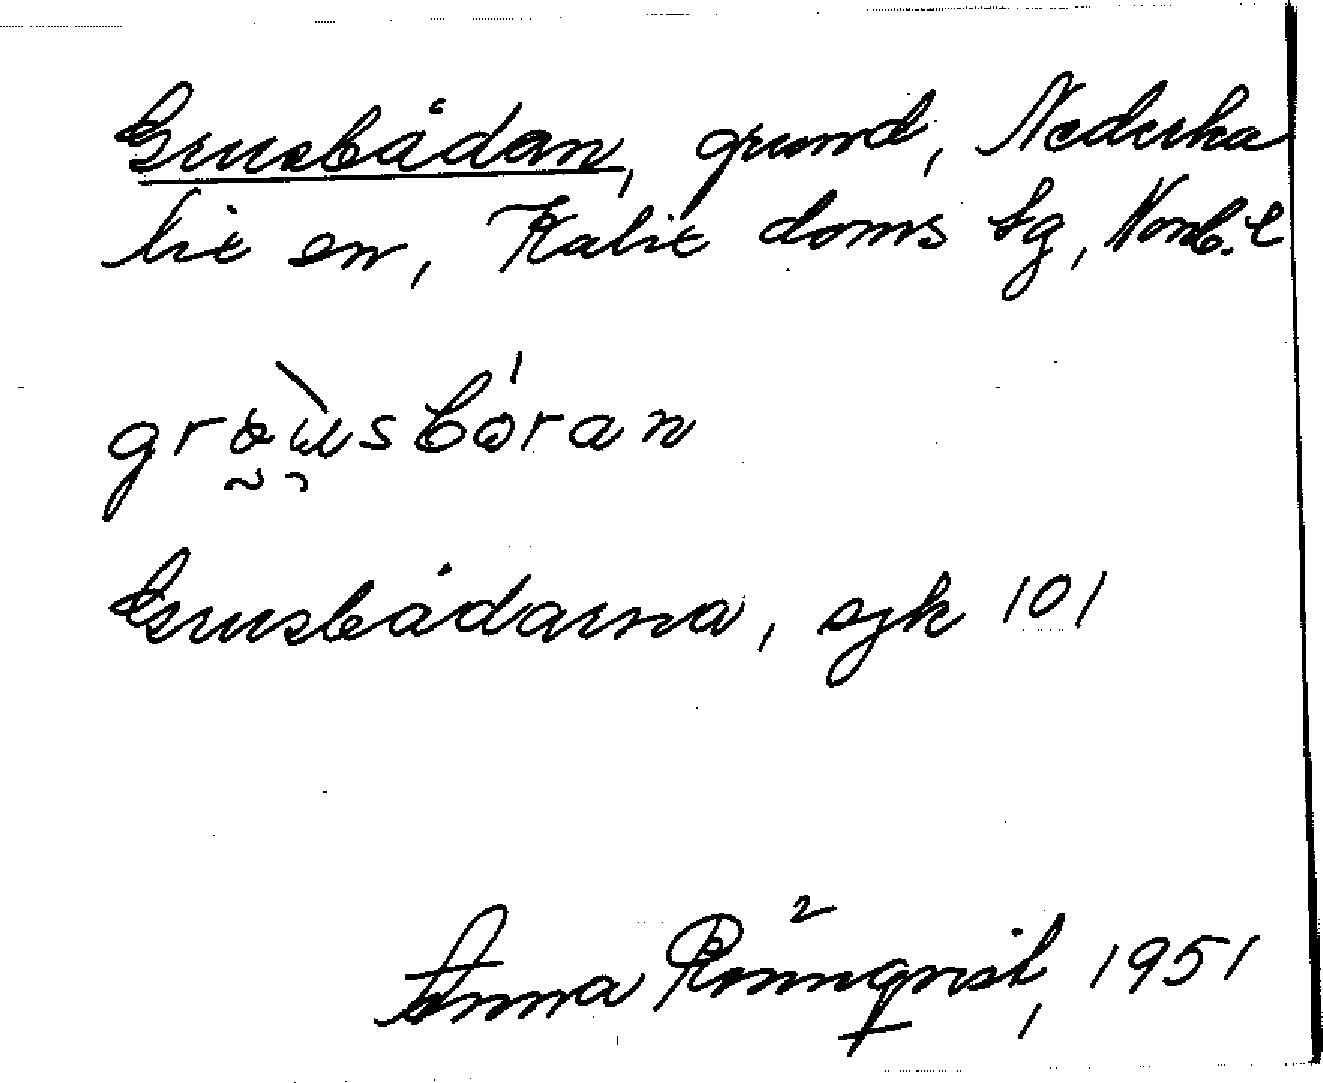 Grusbådan, grund, Nederka
lix sn, Kalix doms lg, Norrb. l
grøʉsbǿran
Grusbådarna, sjk 101
Anna Rönnqvist, 1951